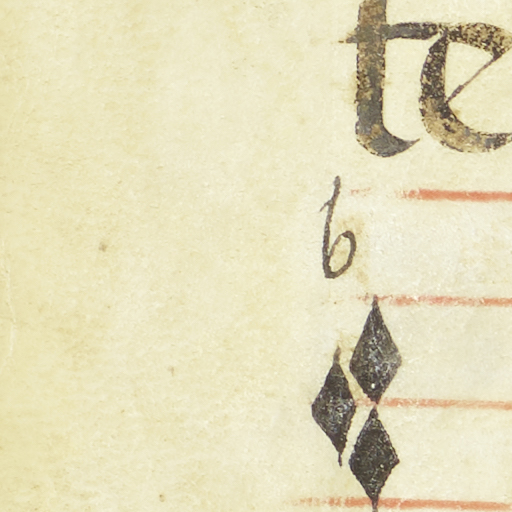 te
b